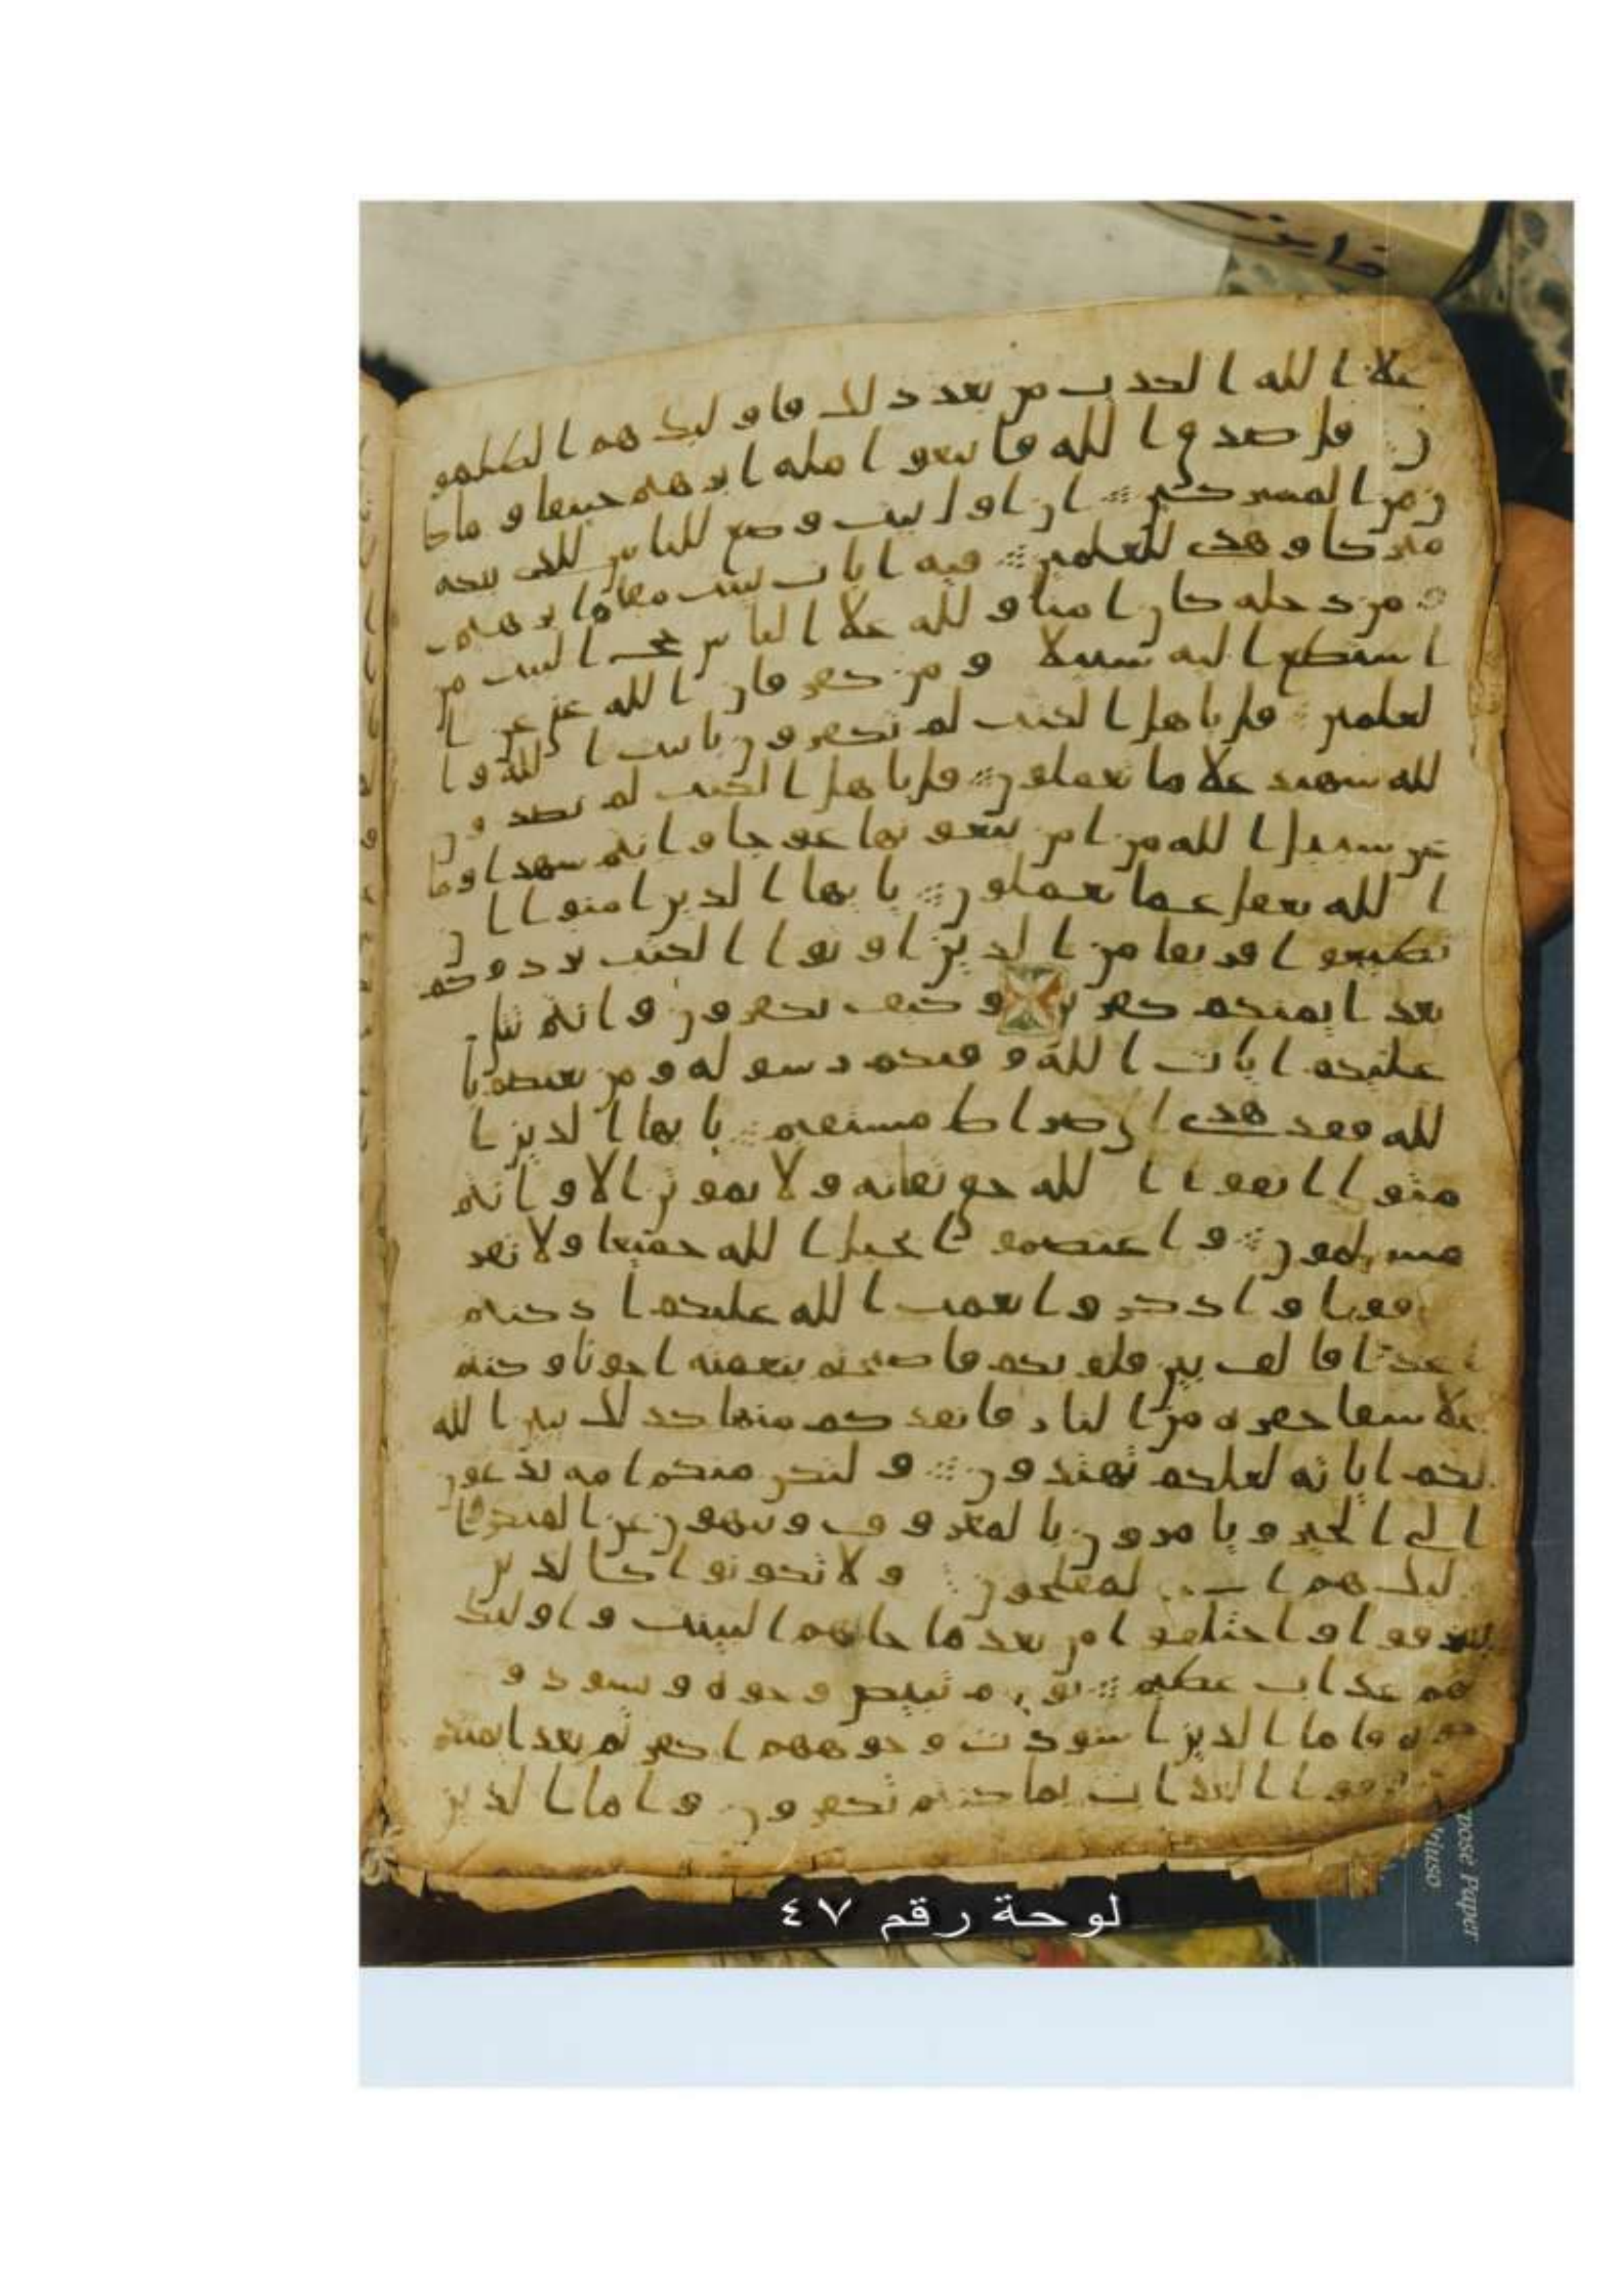 علا الله الكدب من بعد دلك فاولىك هم الطلمو
ن قل صدق الله فاتبعوا مله ابرهيم حنيفا وما كا
ن من المشركين ان اول بيت وضع للناس للدى ببكه
مبركا وهدى للعلمين فيه ايات بينت مقام ابرهيم و
من دخله كان امنا ولله علا الناس حج البيت من
استطع اليه سبيلا ومن كفر فان الله غنى عن ا
لعلمين قل ياهل الكتب لم تكفرون بايت الله وا
لله شهيد علا ما تعملون قل ياهل الكتب لم تصدون
عن سبيل الله من امن تبغونها عوجا وانتم شهدا وما
الله بغفل عما تعملون يايها الدين امنوا ان
تطيعوا فريقا من الدين اوتوا الكتب يردوكم
بعد ايمنكم كفرين وكيف تكفرون وانتم تتلى
عليكم ايات الله وفيكم رسوله ومن يعتصم با
لله فقد هدى الى صراط مستقيم يايها الدين ا
منوا اتقوا الله حق تقاته ولا تموتن الا وانتم
مسلمون واعتصموا بحبل الله جميعا ولا تفر
قوا وادكروا نعمت الله عليكم اد كنتم
اعدا فالف بين قلوبكم فاصبحتم بنعمته اخونا وكنتم
علا شفا حفره من النار فانقدكم منها كدلك يبين الله
لكم اياته لعلكم تهتدون ولتكن منكم امه يدعون
الى الخير ويامرون بالمعروف وينهون عن المنكر وا
ولىك هم المفلحون ولا تكونوا كالدين
تفرقوا واختلفوا من بعد ما جاهم البينت واولىك
لهم عداب عظيم يوم تبيض وجوه وتسود و
جوه فاما الدين اسودت وجوههم اكفرتم بعد ايمنكم
فدوقوا العداب بما كنتم تكفرون واما الدين
لوحة رقم ٤٧